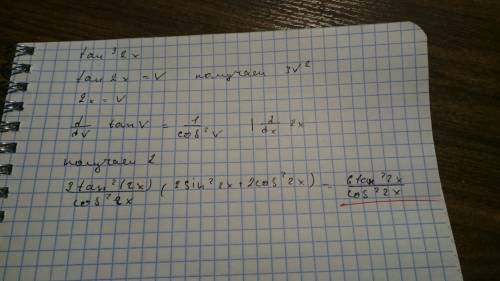 tan³2x
tan 2x = V получаем 3V²
2x = V
d/dV tan V = 1/cos²V | d/dx 2x
получаем 2
3tan²(2x)/cos²2x (2sin²2x + 2cos²2x) = 6tan²2x/cos²2x